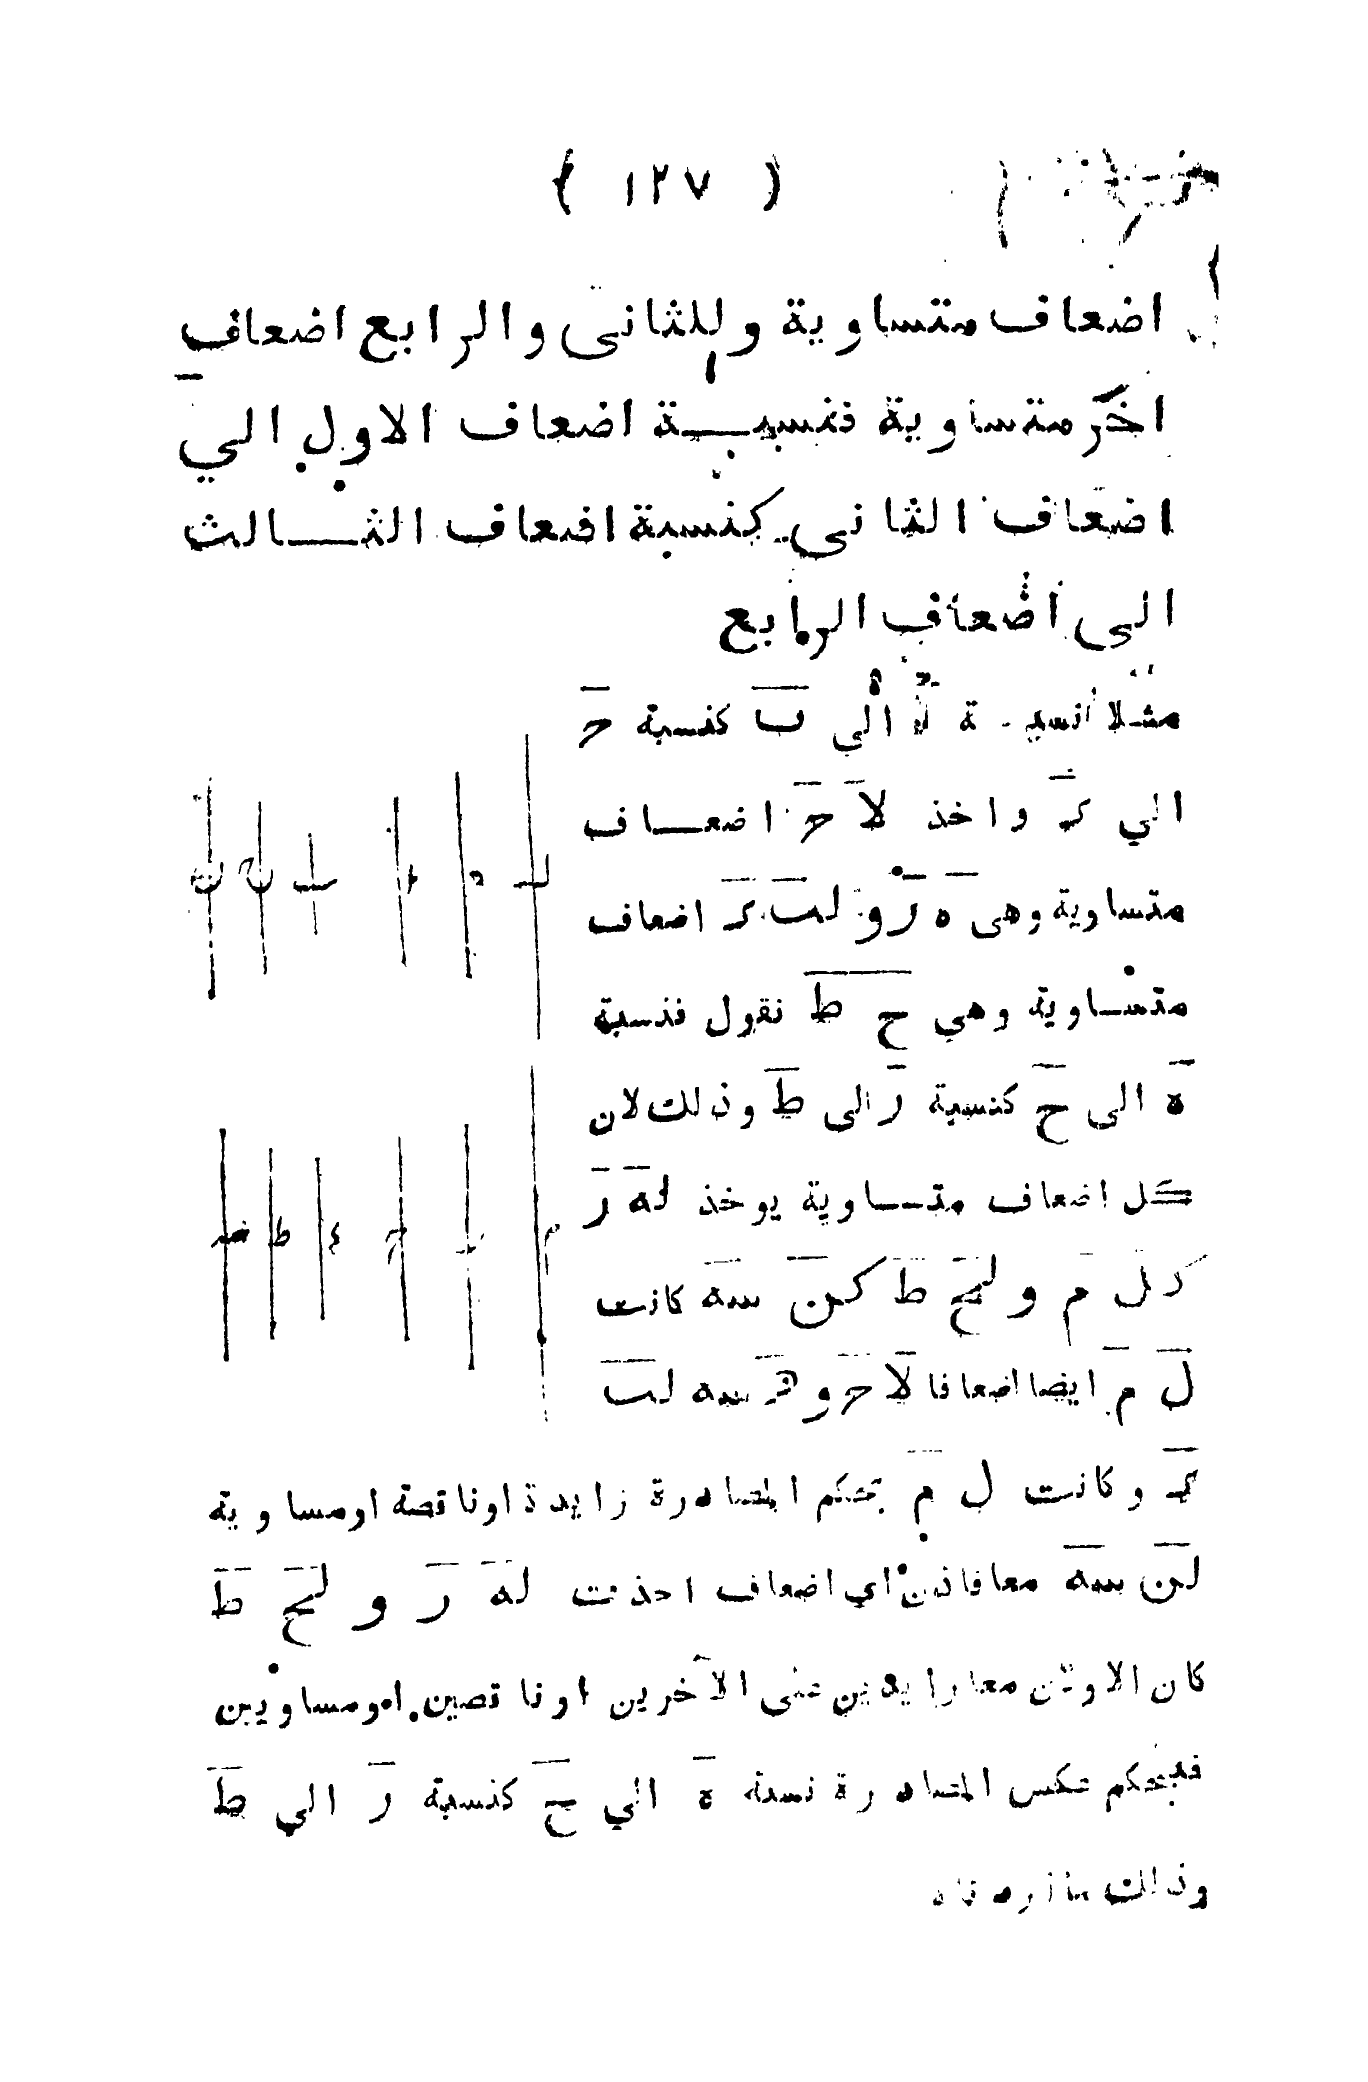 ( ١٢٧ )
اضعاف متساوية وللثانى والرابع اضعاف
اخر متساوية فنسبة اضعاف الاول الي
اضعاف الثانى كنسبة اضعاف الثالث
الى اضعاف الرابع
مثلا نسبة ا الي ب كنسبة ح
الي د واخذ لا ح اضعاف
متساوية وهى ه ر و لب د اضعاف
متساوية وهي ح ط نقول فنسبة
ه الى ح كنسبة ر الى ط وذلك لان
كل اضعاف متساوية يوخذ له ر
كل م و لح ط كن سه كانت
ل م ايضا اضعافا لا ح و سه لب
د وكانت ل م بحكم المصادرة زايدة اوناقصة اومساوية
لن سه معا فاذن اي اضعاف اخذت له ر و لح ط
كان الاولان معا زايدين على الآخرين اوناقصين اومساويين
فبحكم عكس المصادرة نسبة ه الي ح كنسبة ر الي ط
وذلك ما اردناه